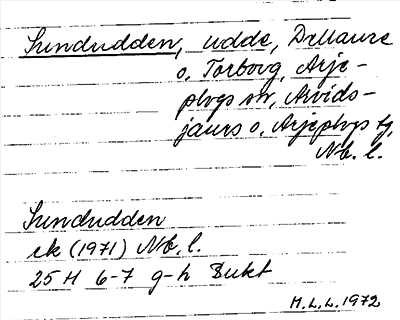 Sundudden, udde, Dellaure
o. Torborg, Arje-
plogs snr, Arvids-
jaurs o. Arjeplogs tg,
Nb. l.
Sundudden
ek (1971) Nb. l.
25 H 6-7 g-h Bukt
H.L.L. 1972